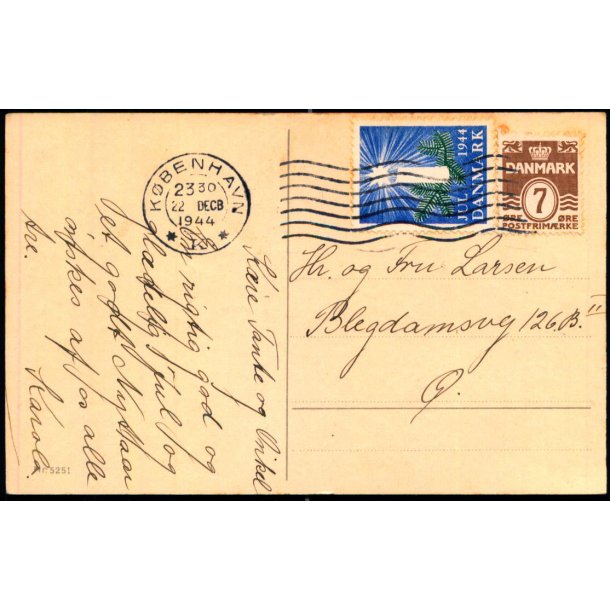 KØBENHAVN
2330
22 DECB
1944
JUL 1944
DANMARK
DANMARK
7
ØRE ØRE
POSTFRIMÆRKE
Hr. og Fru Larsen
Blegdamsvej 126 B. II
Ø.
Kære Tante og Onkel
En rigtig god og
glædelig Jul og
et godt Nytaar
ønskes af os alle
tre. Karola.
5251